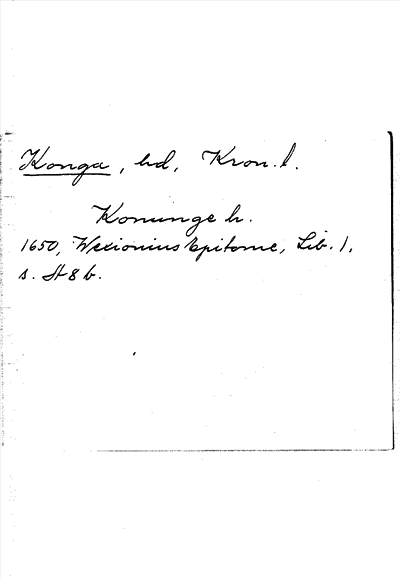 Konga, hd, Kron. l.
Konunge h.
1650, Wexionius Epitome, Lib. 1,
s. A 8 b.